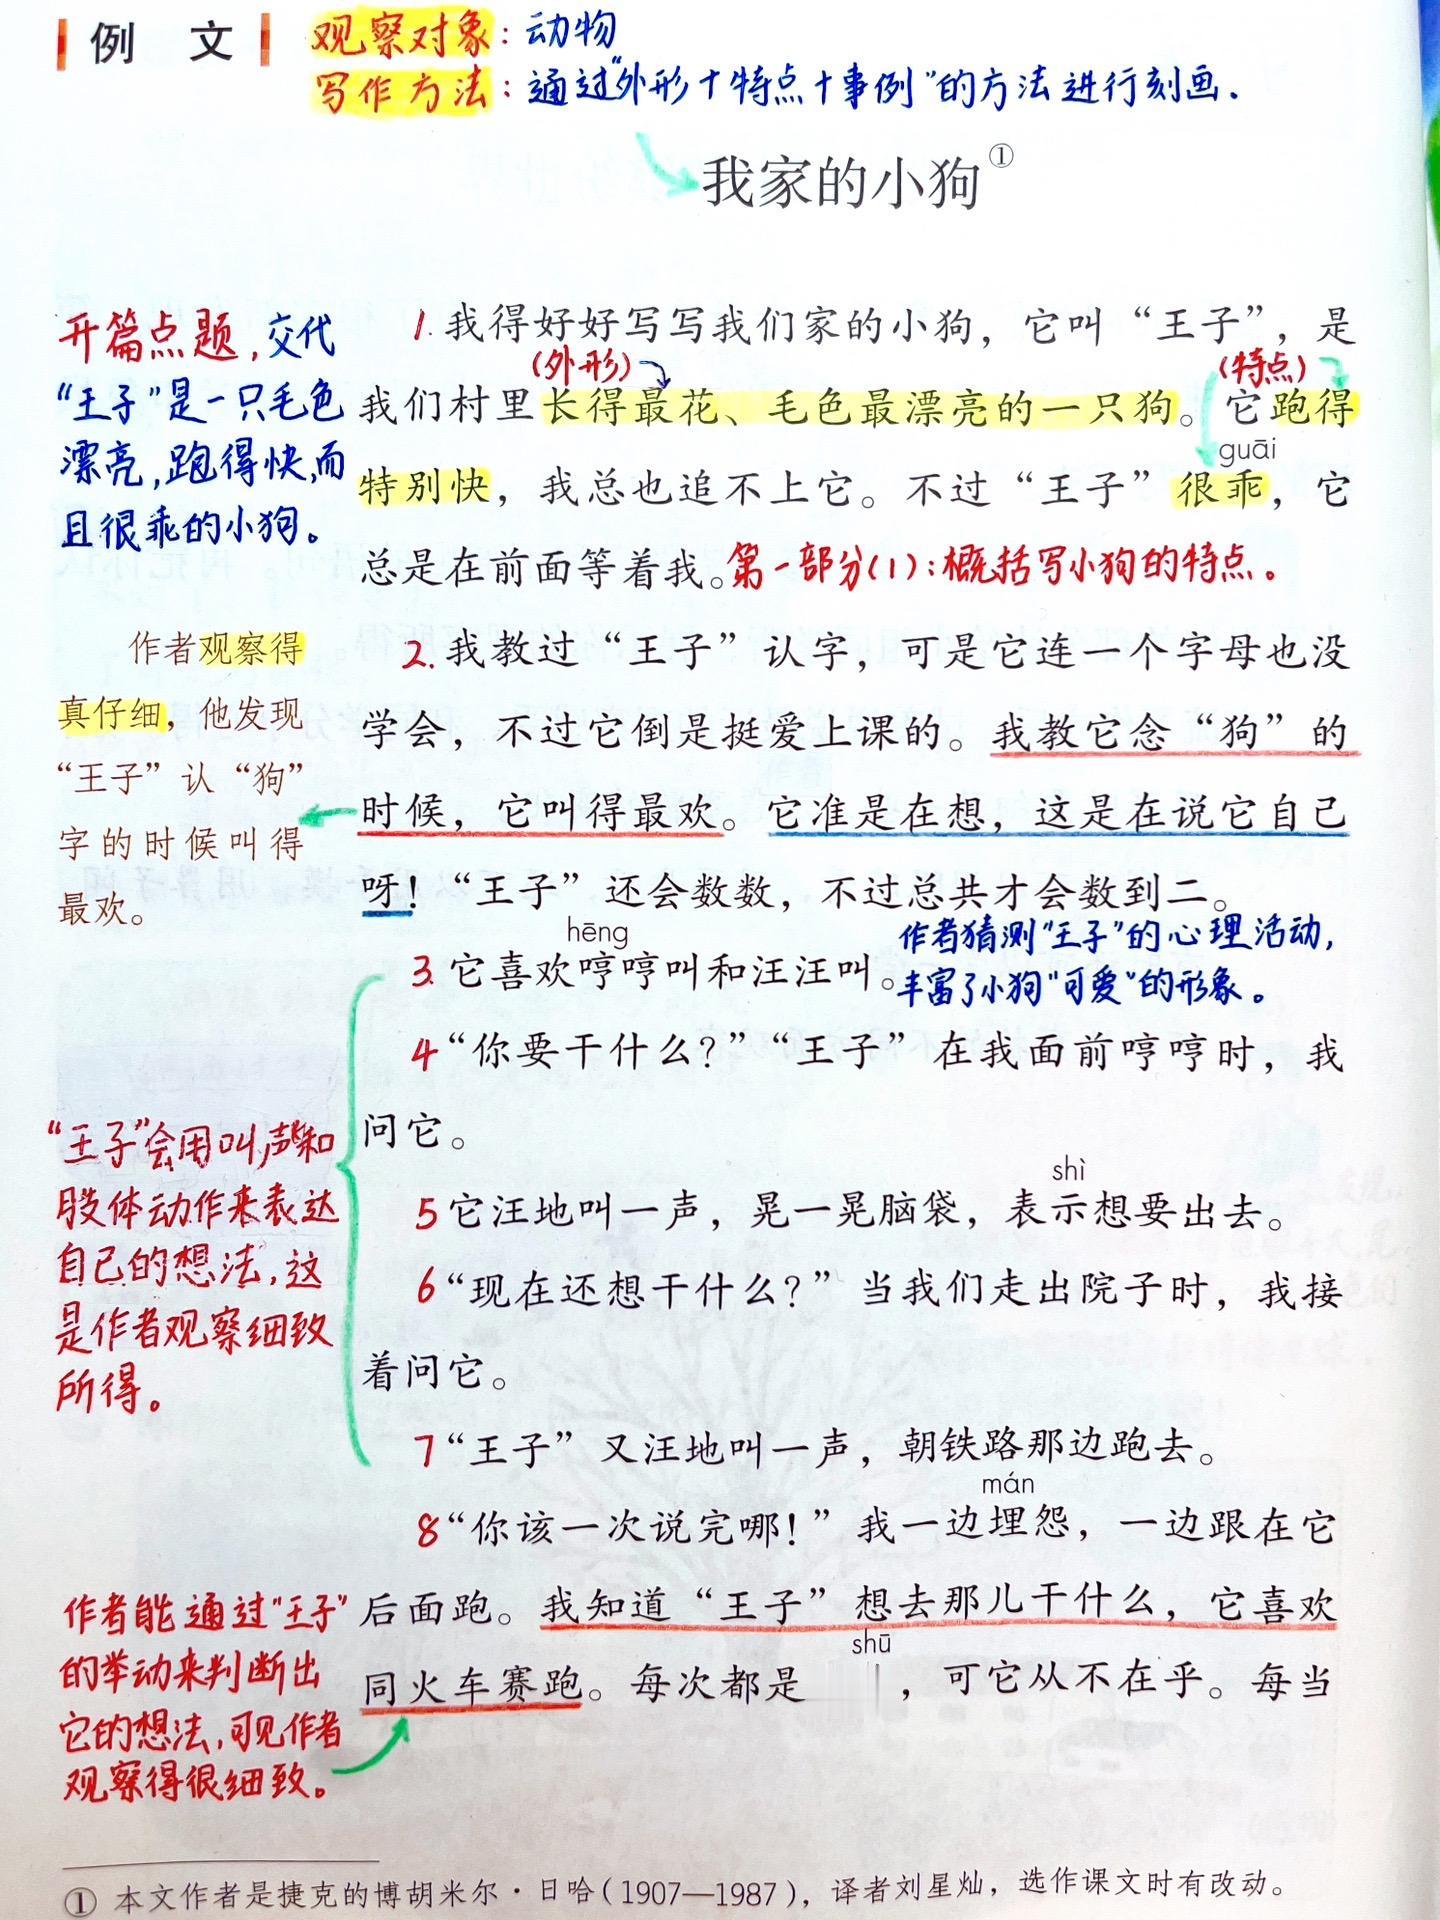 例 文
观察对象：动物
写作方法：通过“外形＋特点＋事例”的方法进行刻画.
我家的小狗①
开篇点题，交代
“王子”是一只毛色
漂亮，跑得快，而
且很乖的小狗。
1.我得好好写写我们家的小狗，它叫“王子”，是
(外形)
(特点)
我们村里长得最花、毛色最漂亮的一只狗。它跑得
guāi
特别快，我总也追不上它。不过“王子”很乖，它
总是在前面等着我。第一部分(1)：概括写小狗的特点。
作者观察得
真仔细，他发现
“王子”认“狗”
字的时候叫得
最欢。
2.我教过“王子”认字，可是它连一个字母也没
学会，不过它倒是挺爱上课的。我教它念“狗”的
时候，它叫得最欢。它准是在想，这是在说它自己
呀！“王子”还会数数，不过总共才会数到二。
作者猜测“王子”的心理活动，
丰富了小狗“可爱”的形象。
hēng
3.它喜欢哼哼叫和汪汪叫。
4“你要干什么？”“王子”在我面前哼哼时，我
问它。
“王子”会用叫声和
肢体动作来表达
自己的想法，这
是作者观察细致
所得。
shì
5它汪地叫一声，晃一晃脑袋，表示想要出去。
6“现在还想干什么？”当我们走出院子时，我接
着问它。
7“王子”又汪地叫一声，朝铁路那边跑去。
mán
8“你该一次说完哪！”我一边埋怨，一边跟在它
后面跑。我知道“王子”想去那儿干什么，它喜欢
shū
同火车赛跑。每次都是，可它从不在乎。每当
作者能通过“王子”
的举动来判断出
它的想法，可见作者
观察得很细致。
①本文作者是捷克的博胡米尔·日哈(1907—1987)，译者刘星灿，选作课文时有改动。